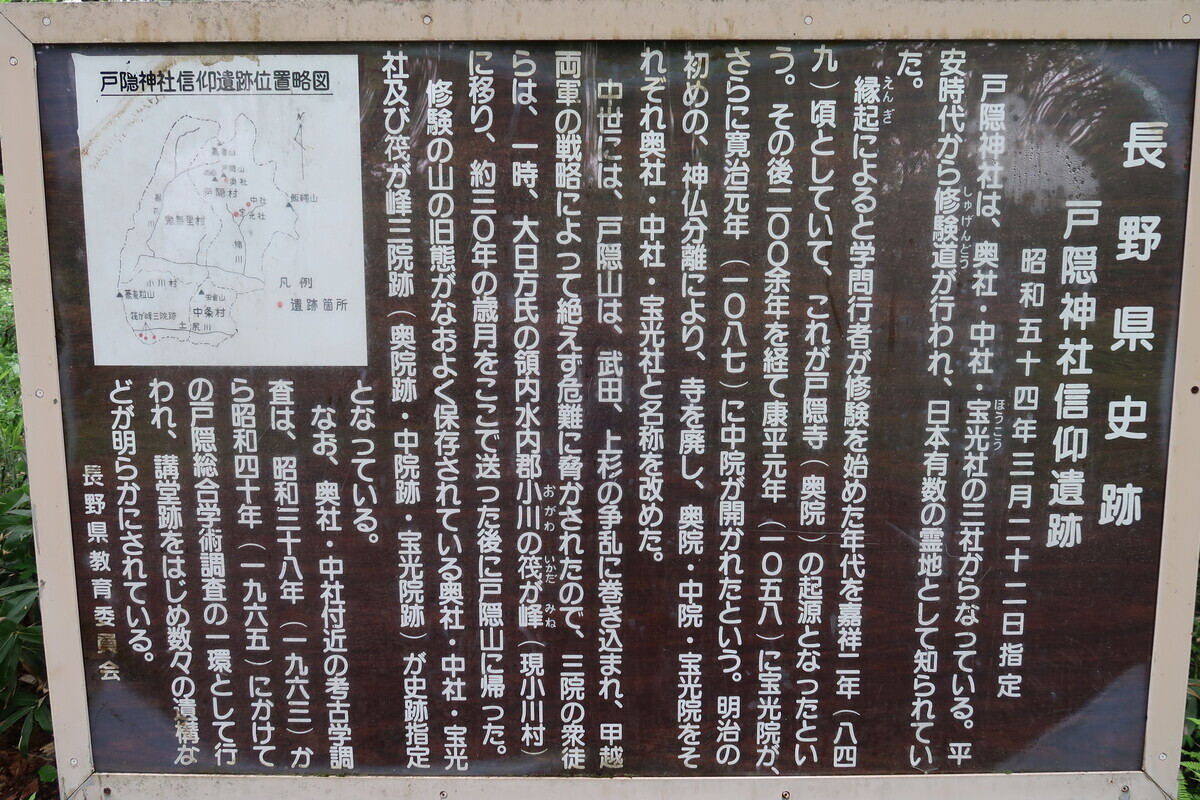 長野県史跡
戸隠神社信仰遺跡
昭和五十四年三月二十二日指定
戸隠神社は、奥社・中社・宝光社の三社からなっている。平
ほうこう
安時代から修験道が行われ、日本有数の霊地として知られてい
しゅげんどう
た。
縁起によると学問行者が修験を始めた年代を嘉祥二年（八四
えんぎ
九）頃としていて、これが戸隠寺（奥院）の起源となったとい
う。その後二〇〇余年を経て康平元年（一〇五八）に宝光院が、
さらに寛治元年（一〇八七）に中院が開かれたという。明治の
初めの、神仏分離により、寺を廃し、奥院・中院・宝光院をそ
れぞれ奥社・中社・宝光社と名称を改めた。
中世には、戸隠山は、武田、上杉の争乱に巻き込まれ、甲越
両軍の戦略によって絶えず危難に脅かされたので、三院の衆徒
らは、一時、大日方氏の領内水内郡小川の筏が峰（現小川村）
おがわ いかだ みね
に移り、約三〇年の歳月をここで送った後に戸隠山に帰った。
修験の山の旧態がなおよく保存されている奥社・中社・宝光
社及び筏が峰三院跡（奥院跡・中院跡・宝光院跡）が史跡指定
となっている。
なお、奥社・中社付近の考古学調
査は、昭和三十八年（一九六三）か
ら昭和四十年（一九六五）にかけて
の戸隠総合学術調査の一環として行
われ、講堂跡をはじめ数々の遺構な
どが明らかにされている。
長野県教育委員会
戸隐神社信仰遺跡位置略図
N
高妻山
戸隠山
奥社
戸隠村
中社
宝光社
飯縄山
鬼無里村
楠川
小川村
虫倉山
中条村
筏が峰三院跡
土尻川
凡例
遺跡箇所